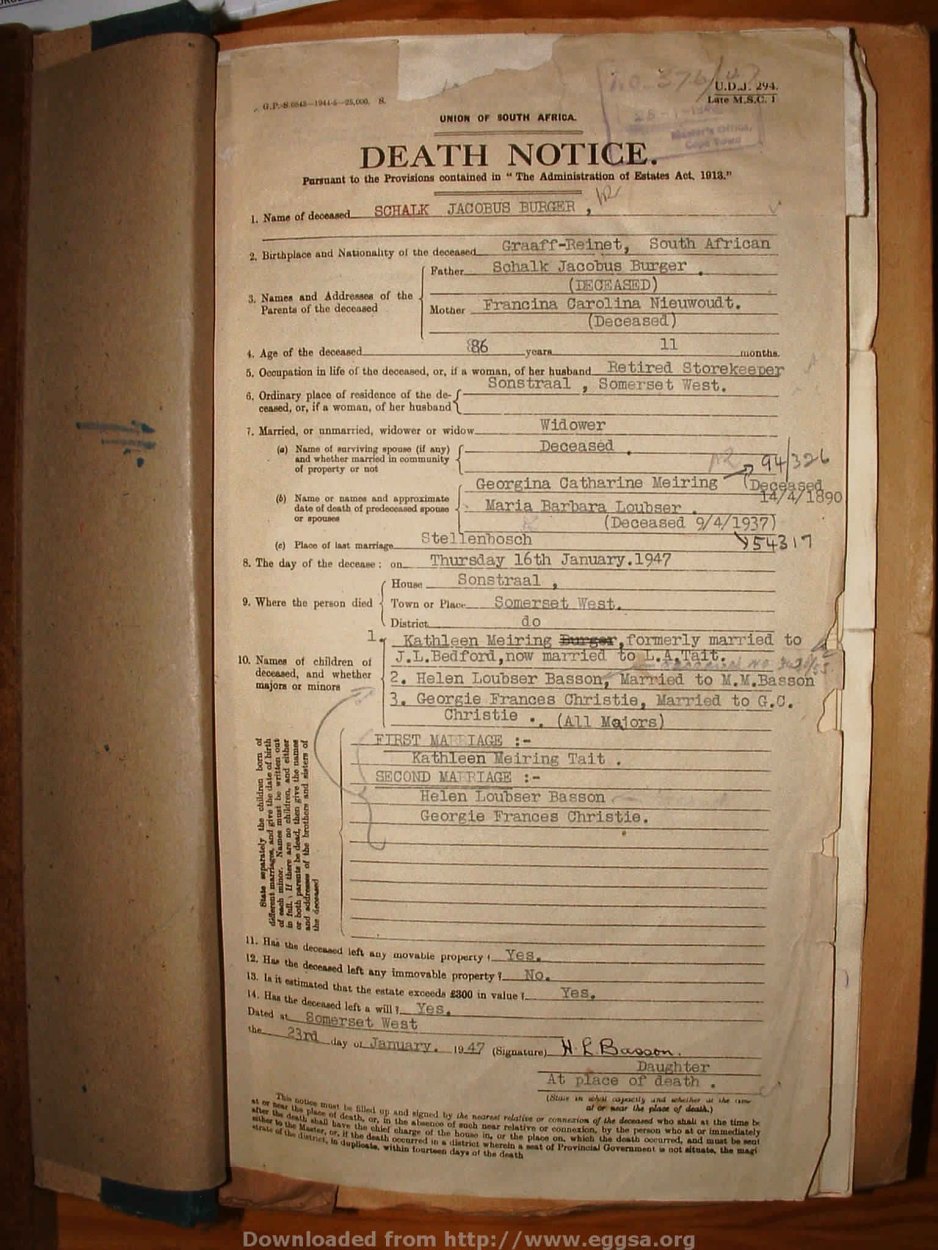 G.P.-S.6543—1944-5—25,000. S.
U.D.J. 294.
Late M.S.C. 1
Master's Office,
Cape Town
UNION OF SOUTH AFRICA.
DEATH NOTICE.
Pursuant to the Provisions contained in "The Administration of Estates Act, 1913."
1. Name of deceased SCHALK JACOBUS BURGER ,
2. Birthplace and Nationality of the deceased Graaff-Reinet, South African
3. Names and Addresses of the Parents of the deceased
Father Schalk Jacobus Burger .
(DECEASED)
Mother Francina Carolina Nieuwoudt.
(Deceased)
4. Age of the deceased 86 years 11 months.
5. Occupation in life of the deceased, or, if a woman, of her husband Retired Storekeeper
6. Ordinary place of residence of the deceased, or, if a woman, of her husband Sonstraal , Somerset West.
7. Married, or unmarried, widower or widow Widower
(a) Name of surviving spouse (if any) and whether married in community of property or not Deceased .
94/326
(b) Name or names and approximate date of death of predeceased spouse or spouses
Georgina Catharine Meiring (Deceased
14/4/1890
Maria Barbara Loubser .
(Deceased 9/4/1937)
(c) Place of last marriage Stellenbosch
54317
8. The day of the decease ; on Thursday 16th January.1947
9. Where the person died
House Sonstraal ,
Town or Place Somerset West.
District do
10. Names of children of deceased, and whether majors or minors
1. Kathleen Meiring Burger, formerly married to
J.L.Bedford,now married to L.A.Tait.
2. Helen Loubser Basson, Married to M.M.Basson
3. Georgie Frances Christie, Married to G.C.
Christie . (All Majors)
State separately the children born of
different marriages, and give the date of birth
of each minor. Names must be written out
in full. If there are no children, and either
or both parents be dead, then give the names
and addresses of the brothers and sisters of
the deceased
FIRST MARRIAGE :-
Kathleen Meiring Tait .
SECOND MARRIAGE :-
Helen Loubser Basson
Georgie Frances Christie.
11. Has the deceased left any movable property ? Yes.
12. Has the deceased left any immovable property ? No.
13. Is it estimated that the estate exceeds £300 in value ? Yes.
14. Has the deceased left a will ? Yes.
Dated at Somerset West
the 23rd day of January. 1947 (Signature) H. L. Basson.
Daughter
At place of death .
(State in what capacity and whether at the time
at or near the place of death.)
This notice must be filled up and signed by the nearest relative or connexion of the deceased who shall at the time be
at or near the place of death, or, in the absence of such near relative or connexion, by the person who at or immediately
after the death shall have the chief charge of the house in, or the place on, which the death occurred, and must be sent
either to the Master, or, if the death occurred in a district wherein a seat of Provincial Government is not situate, the magi
strate of the district, in duplicate, within fourteen days of the death
Downloaded from http://www.eggsa.org